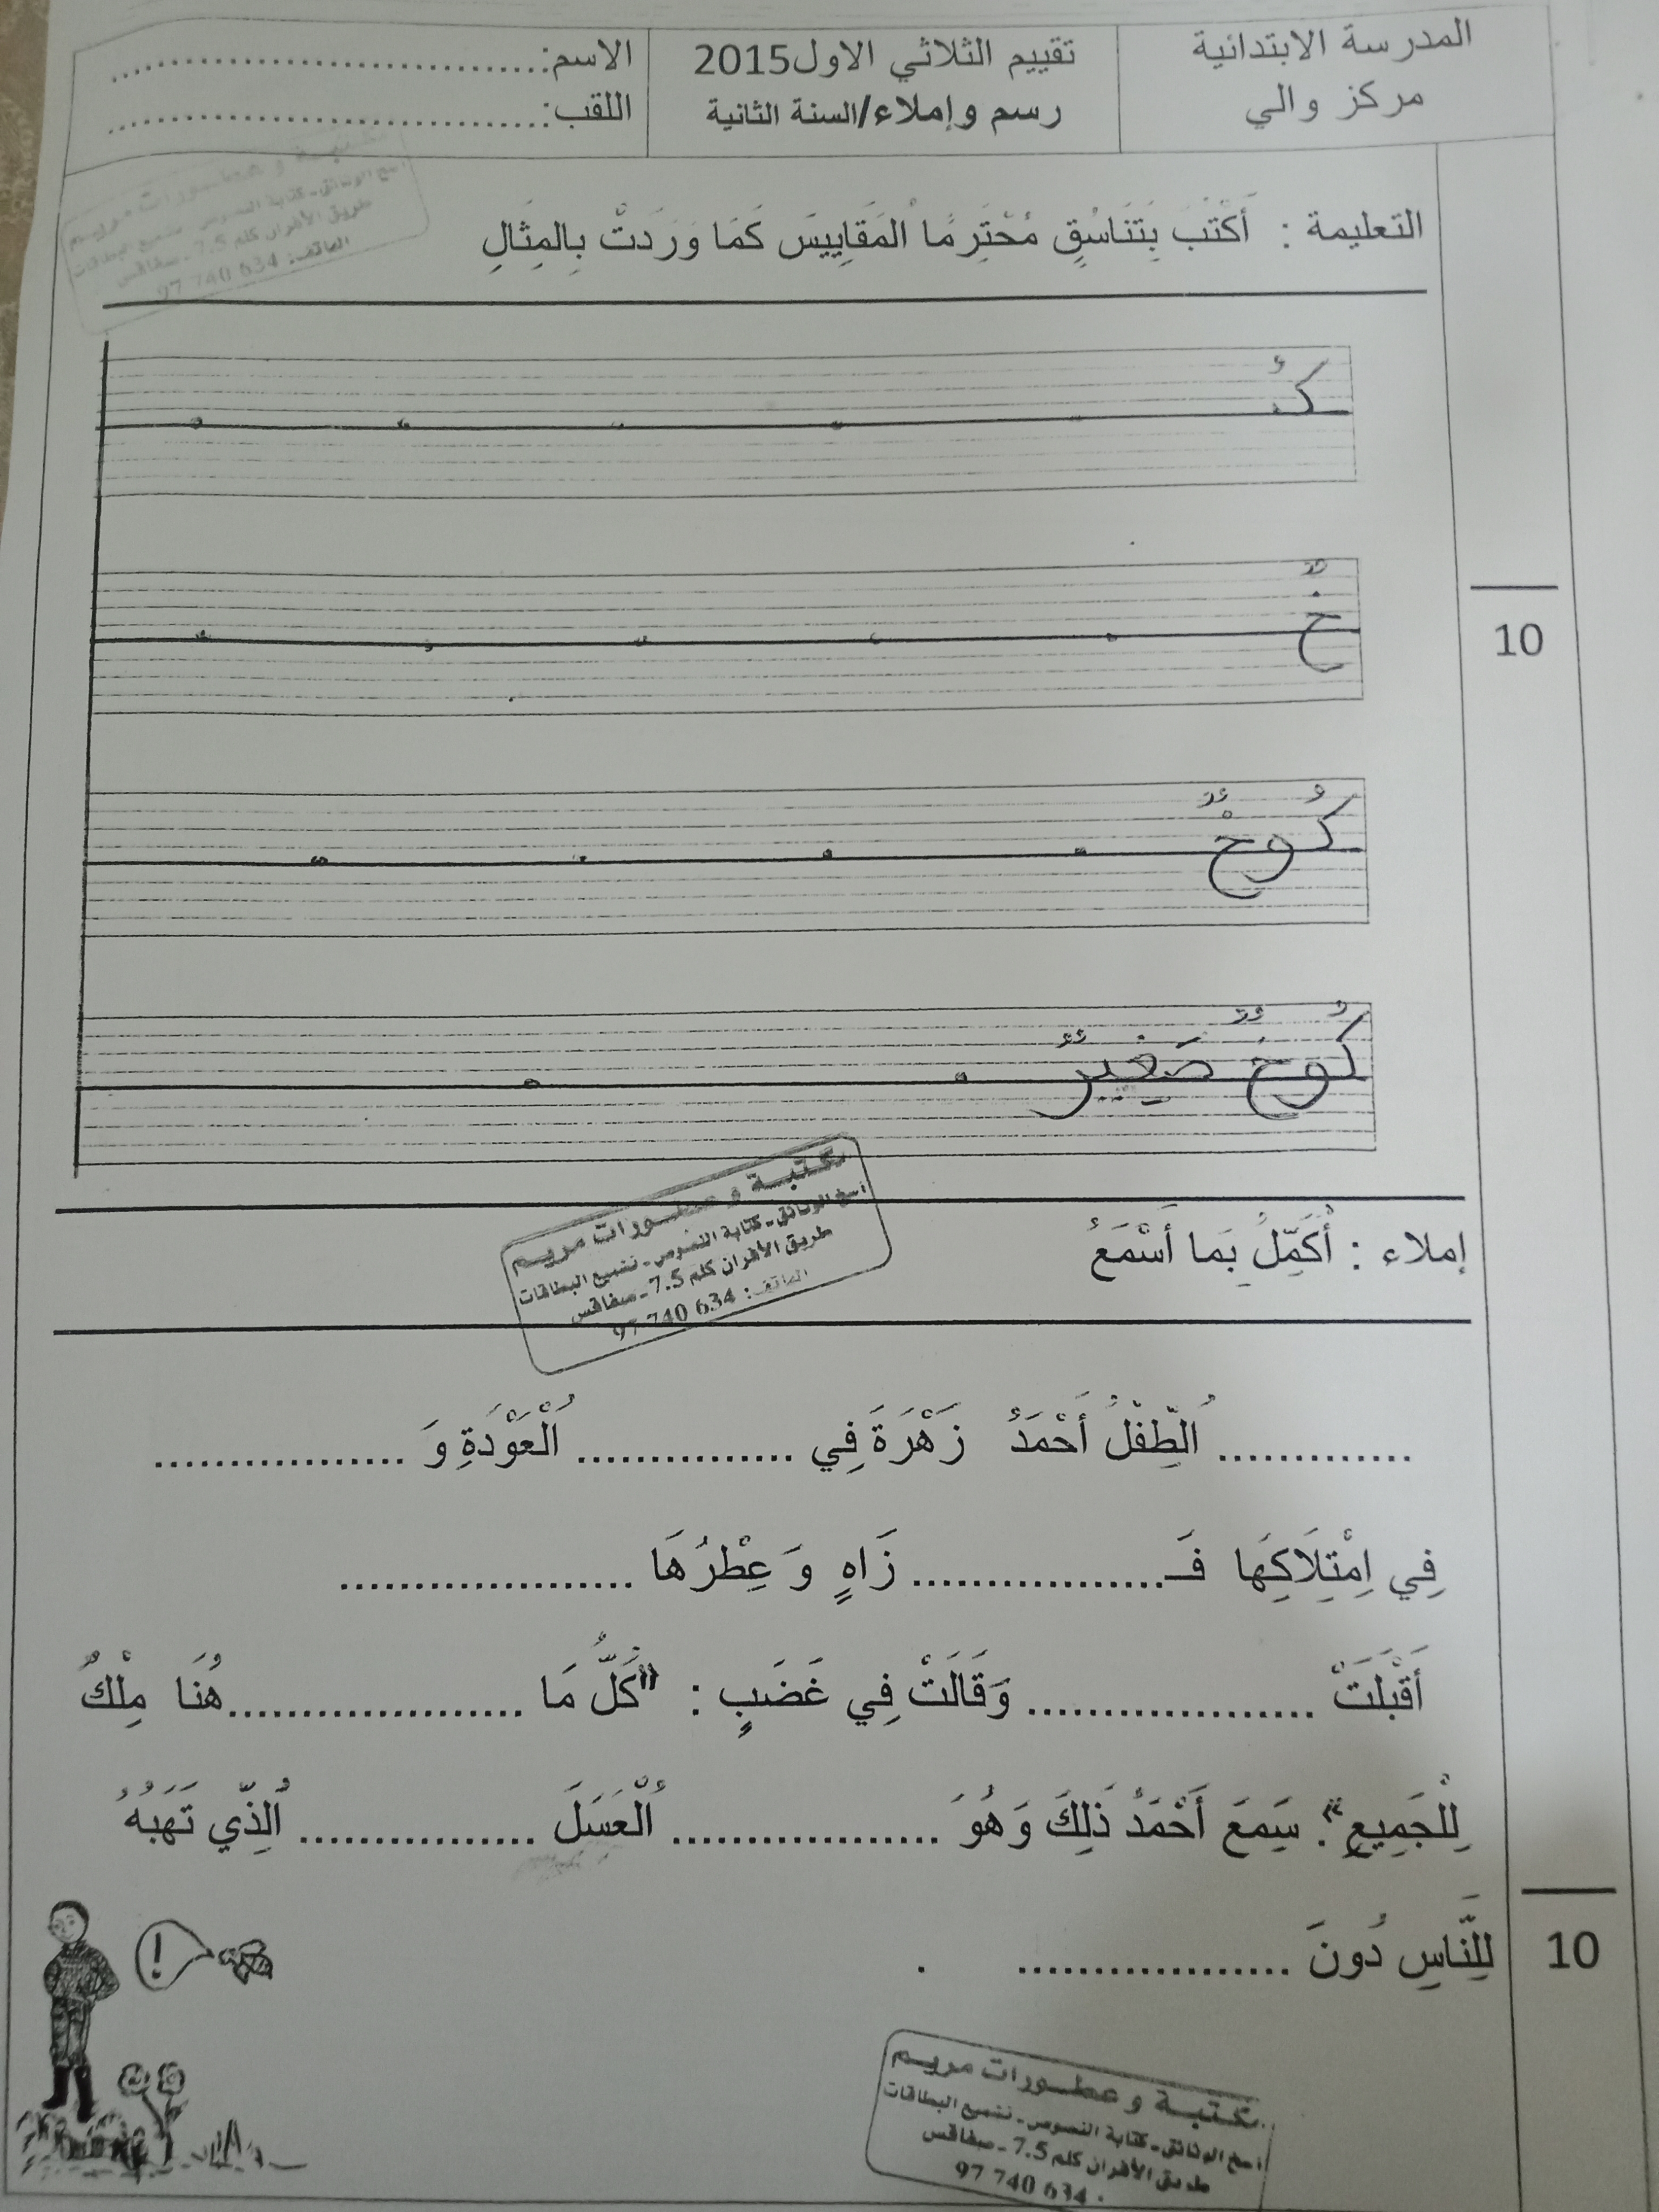 المدرسة الابتدائية
مركز والي
تقييم الثلاثي الاول2015
رسم وإملاء/السنة الثانية
الاسم:................................
اللقب:................................
مكتبة و عطورات مريم
نسخ الوثائق - كتابة النصوص - تشميع البطاقات
طريق الأفران كلم 7.5 - صفاقس
الهاتف: 634 740 97
التعليمة : أَكْتُبُ بِتَنَاسُقٍ مُحْتَرِمًا الْمَقَايِيسَ كَمَا وَرَدَتْ بِالمِثَالِ
كُ
خٌ
10
كُوخٌ
كُوخٌ صَغِيرٌ
مكتبة و عطورات مريم
نسخ الوثائق - كتابة النصوص - تشميع البطاقات
طريق الأفران كلم 7.5 - صفاقس
الهاتف: 634 740 97
إملاء : أُكَمِّلُ بِمَا أَسْمَعُ
............. اُلطِّفْلُ أَحْمَدُ زَهْرَةً فِي ............... اُلْعَوْدَةِ وَ .................
فِي اِمْتِلَاكِهَا فَـ................. زَاهٍ وَ عِطْرُهَا ....................
أَقْبَلَتْ .................... وَقَالَتْ فِي غَضَبٍ : "كُلُّ مَا ....................هُنَا مِلْكٌ
لِلْجَمِيعِ". سَمِعَ أَحْمَدُ ذَلِكَ وَهُوَ .................. اُلْعَسَلَ ................ اُلَّذِي تَهَبُهُ
لِلنَّاسِ دُونَ ................... .
10
!
مكتبة و عطورات مريم
نسخ الوثائق - كتابة النصوص - تشميع البطاقات
طريق الأفران كلم 7.5 - صفاقس
634 740 97